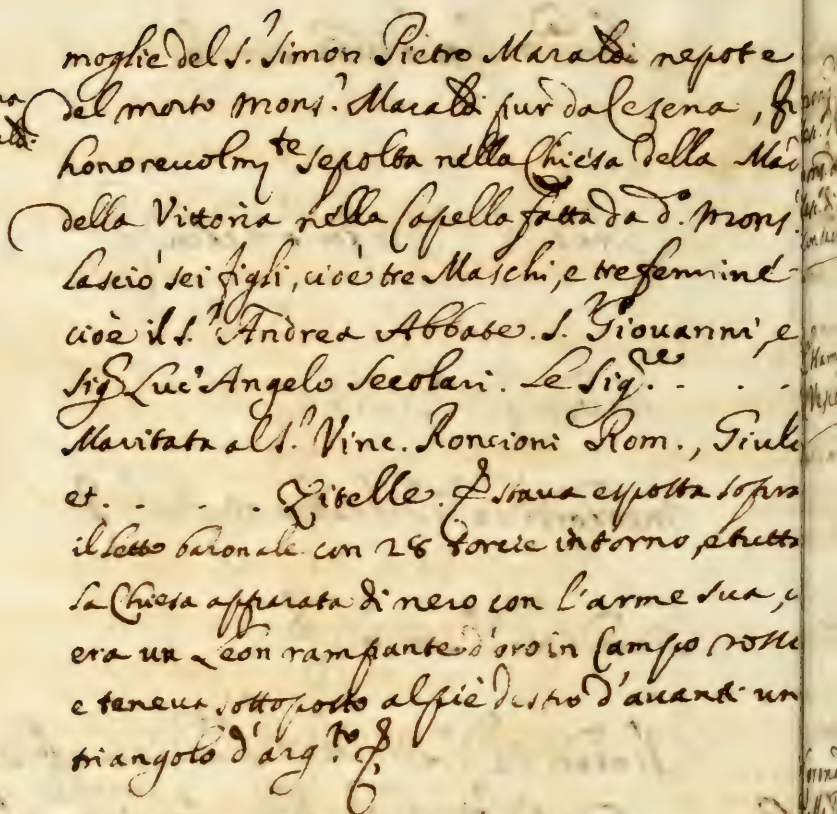 moglie del S.r Simon Pietro Maraldi nepote
del morto Mons.r Maraldi pur da Cesena, fu
honorevolm.te sepolta nella Chiesa della Mad
della Vittoria nella Capella fatta da d.o Mons.
Lasciò sei figli, cioè tre Maschi, e tre femmine
cioè il S.r Andrea Abbate. S.r Giovanni, e
Sig.r Luc'Angelo Secolari. Le Sig.re . . .
Maritata al S.r Vinc. Roncioni Rom., Giuli
et . . . . Zitelle. Stava esposta sopra
il letto baronale con 28 torcie intorno, e tutta
la Chiesa apparata di nero con l'arme sua, c
era un Leon rampante d'oro in Campo rosso
e teneva sottoposto al piè destro d'avanti un
triangolo d'arg.to